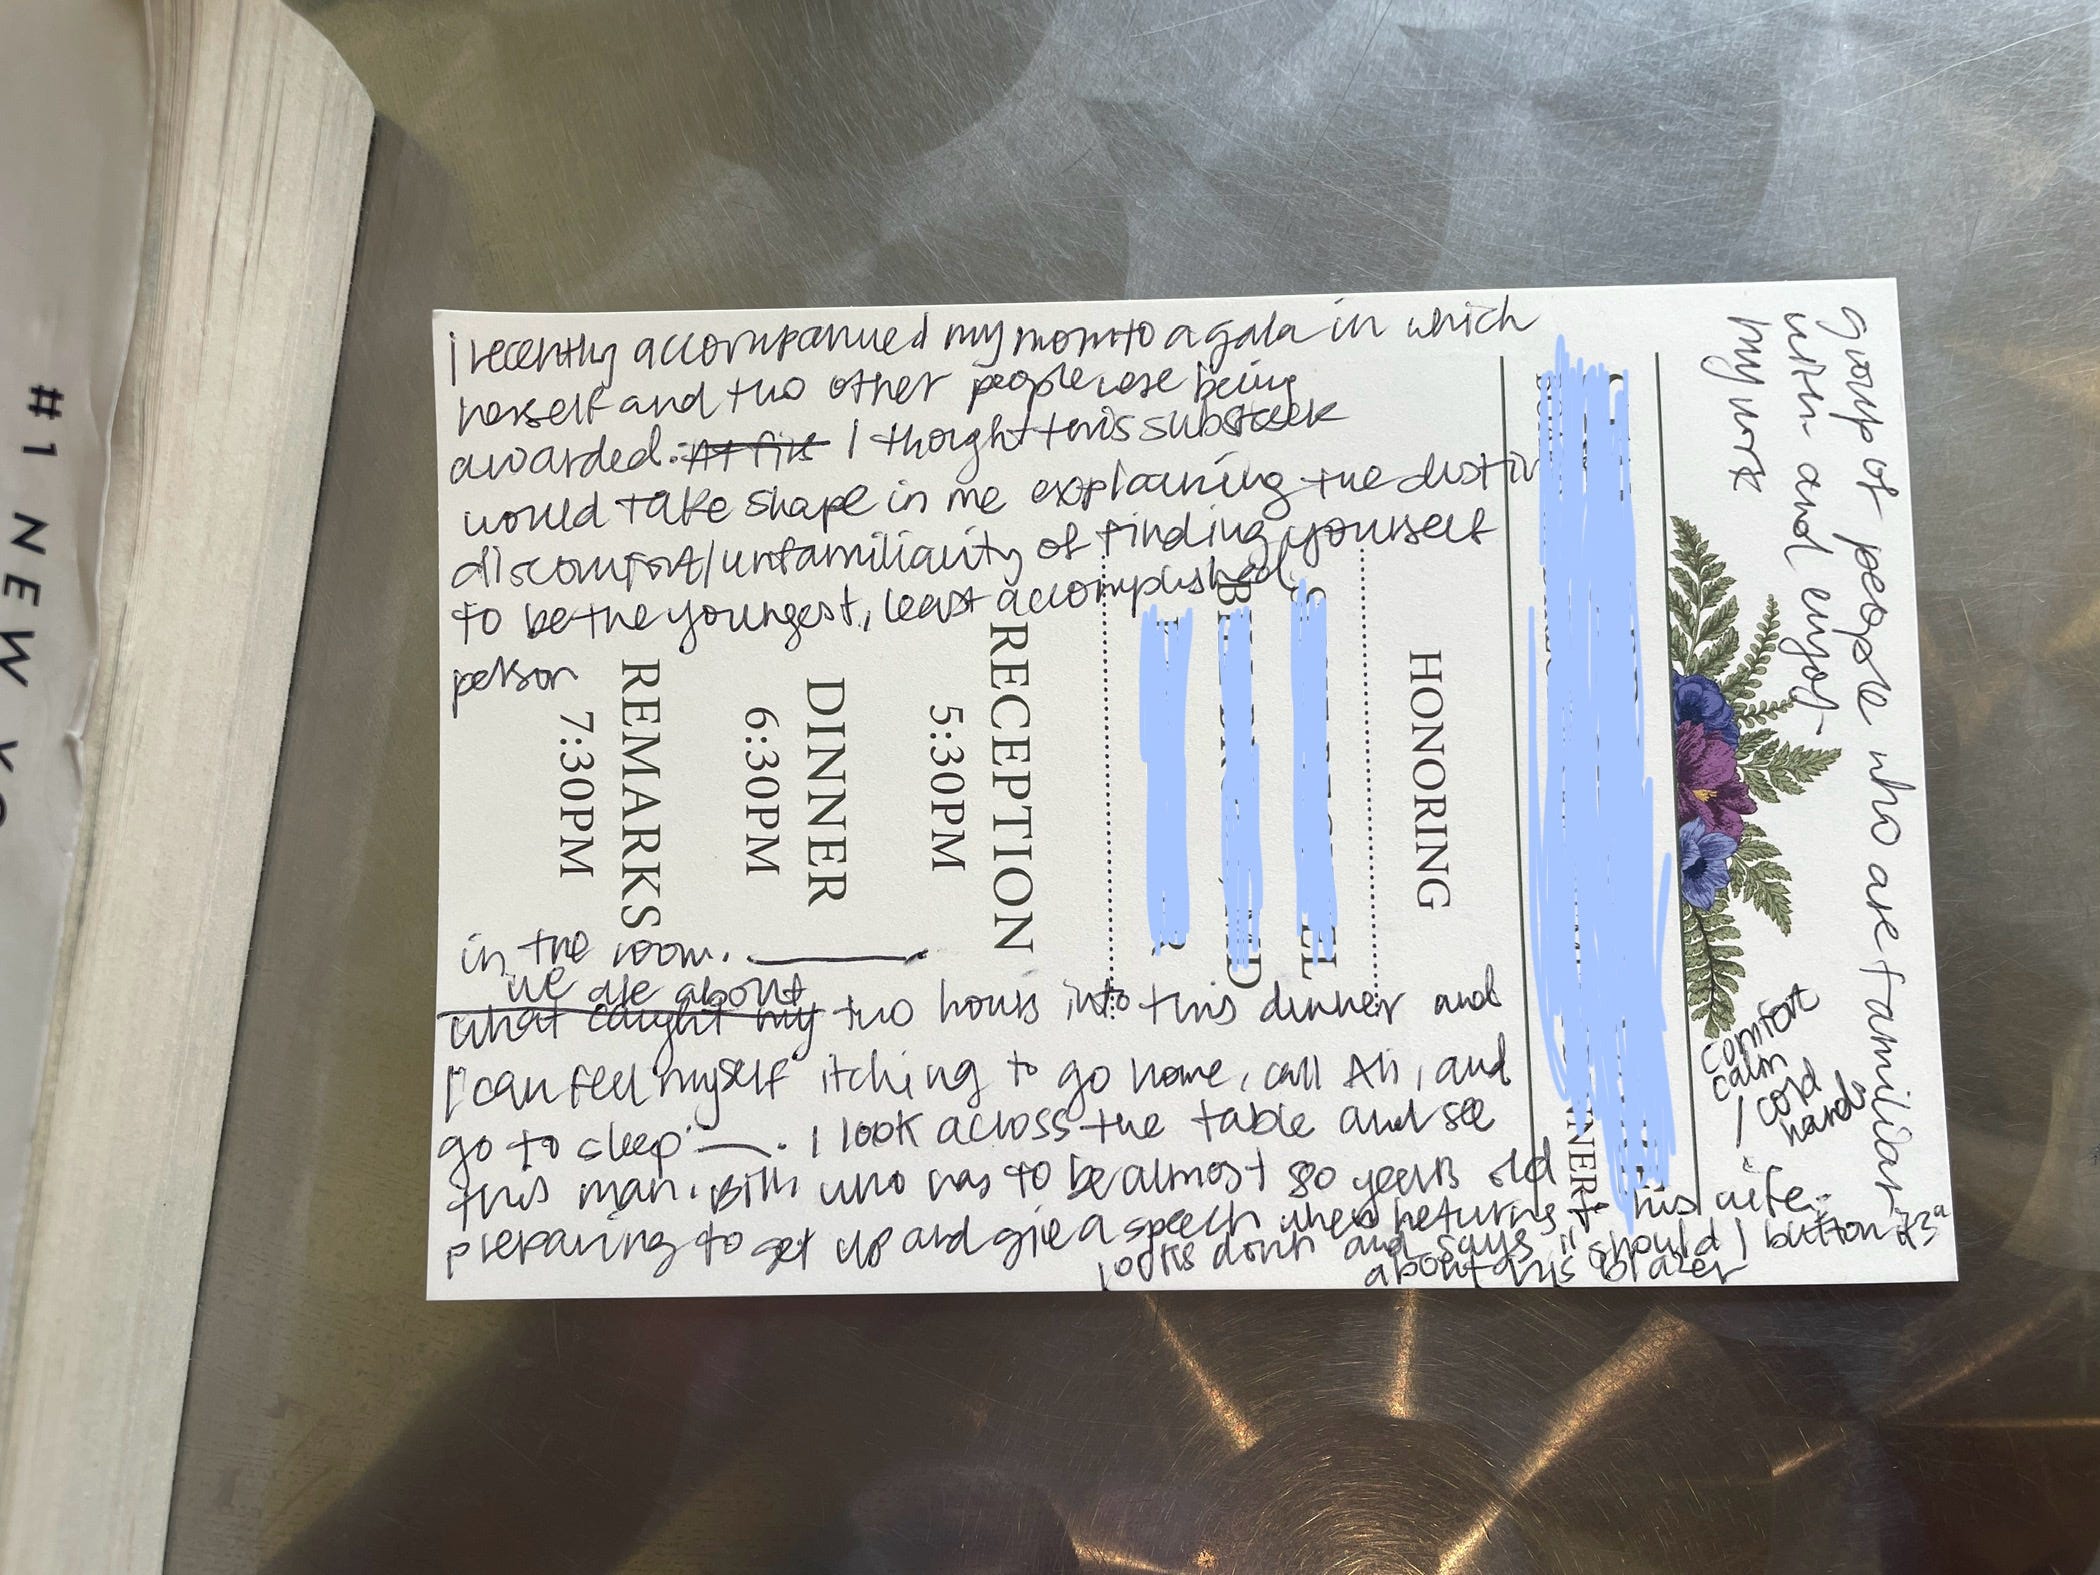 I recently accompanied my mom to a gala in which
herself and two other people were being
awarded. I thought this substack
would take shape in me explaining the
discomfort/unfamiliarity of finding yourself
to be the youngest, least accomplished
person
in the room.
we are about
what caught my two hours into this dinner and
I can feel myself itching to go home, call Ali, and
go to sleep. I look across the table and see
this man, Bill, who has to be almost 80 years old
preparing to get up and give a speech when he turns to his wife.
looks down and says "should I button it?"
about his blazer
group of people who are familiar
with and enjoy
my work
comfort
calm
/ cold
hands
HONORING
RECEPTION
5:30PM
DINNER
6:30PM
REMARKS
7:30PM
#1 NEW